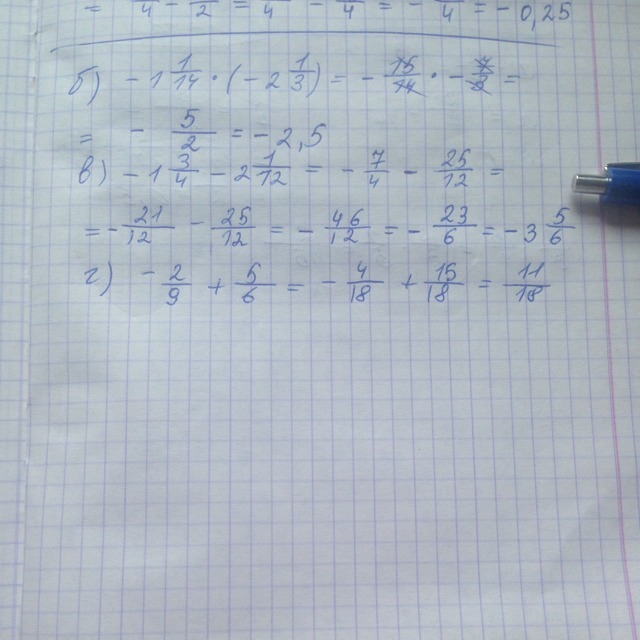 = /4 - /2 = /4 - /4 = - /4 = - 0,25
б) - 1 1/14 · (- 2 1/3) = - 15/14 · - 7/3 =
= - 5/2 = - 2,5
в) - 1 3/4 - 2 1/12 = - 7/4 - 25/12 =
= - 21/12 - 25/12 = - 46/12 = - 23/6 = - 3 5/6
г) - 2/9 + 5/6 = - 4/18 + 15/18 = 11/18